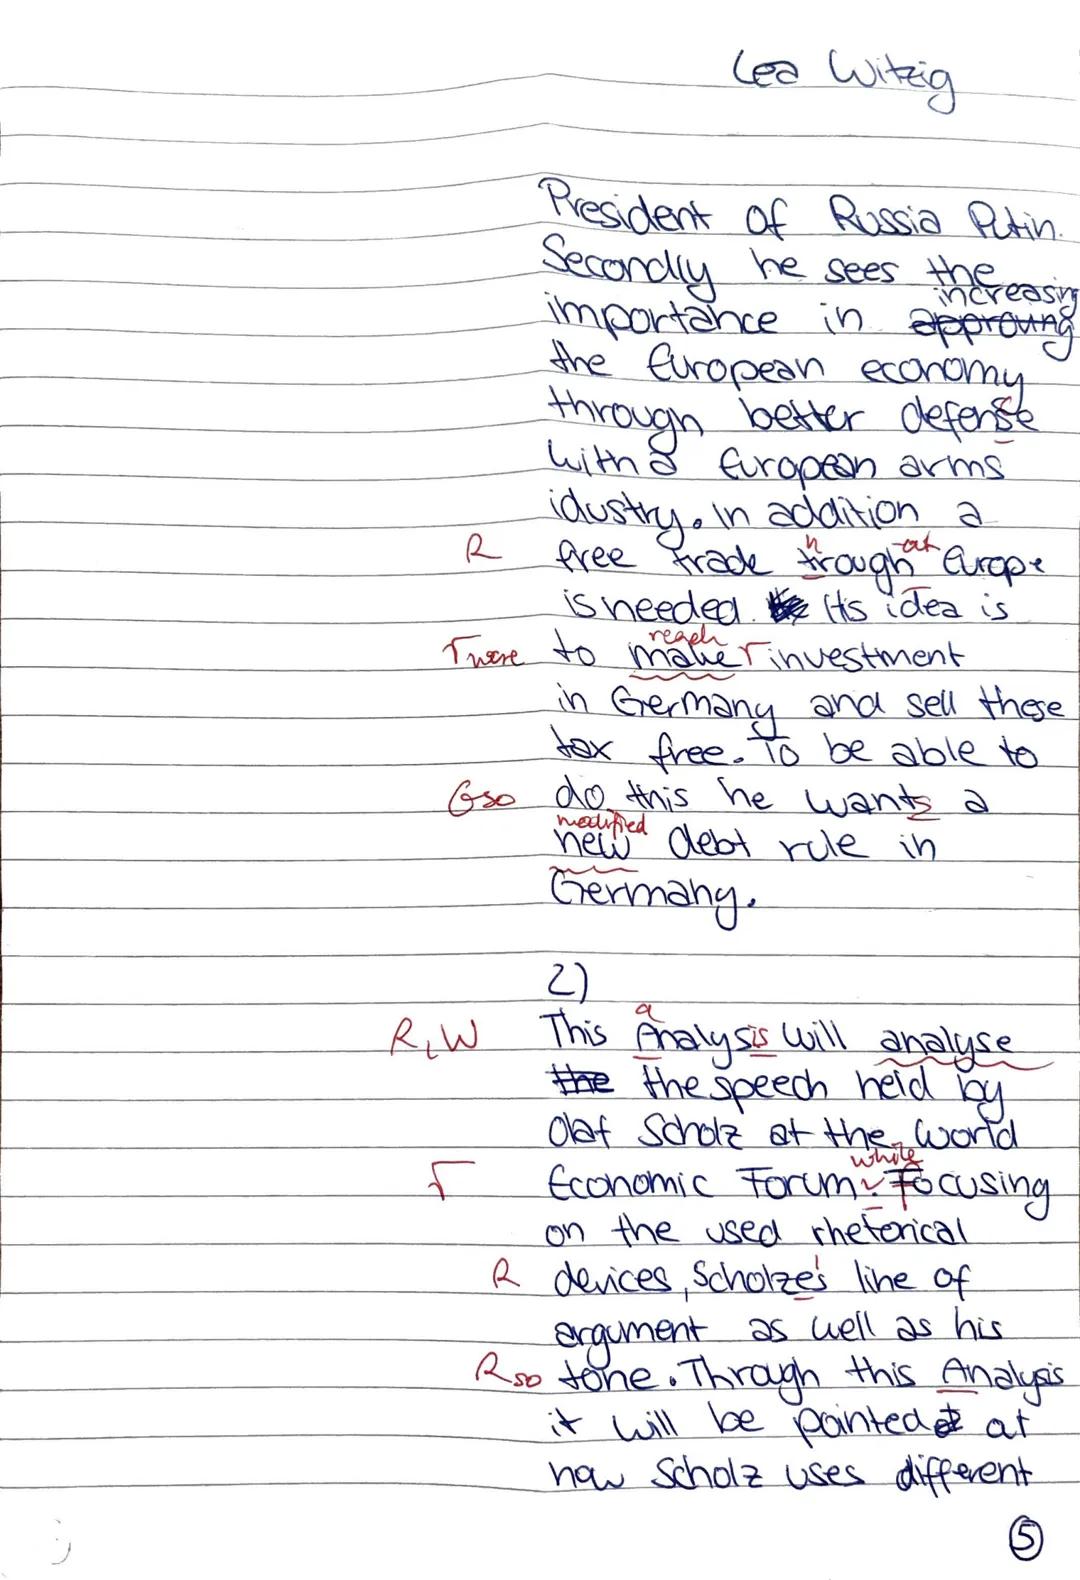 Lea Witzig
President of Russia Putin.
Secondly he sees the
increasing
importance in approving
the European economy
through better defense
with a European arms
idustry. In addition a
R free trade trough Europe
h at
is needed. Its idea is
reach
Γ were to make Γ investment
in Germany and sell these
tax free. To be able to
Gso do this he wants a
modified
new debt rule in
Germany.
2)
a
R, W This Analysis will analyse
the the speech held by
Olaf Scholz at the World
while
Γ Economic Forum. Focusing
on the used rhetorical
R devices, Scholze's line of
argument as well as his
Rso tone. Through this Analysis
it will be pointed at
how Scholz uses different
5